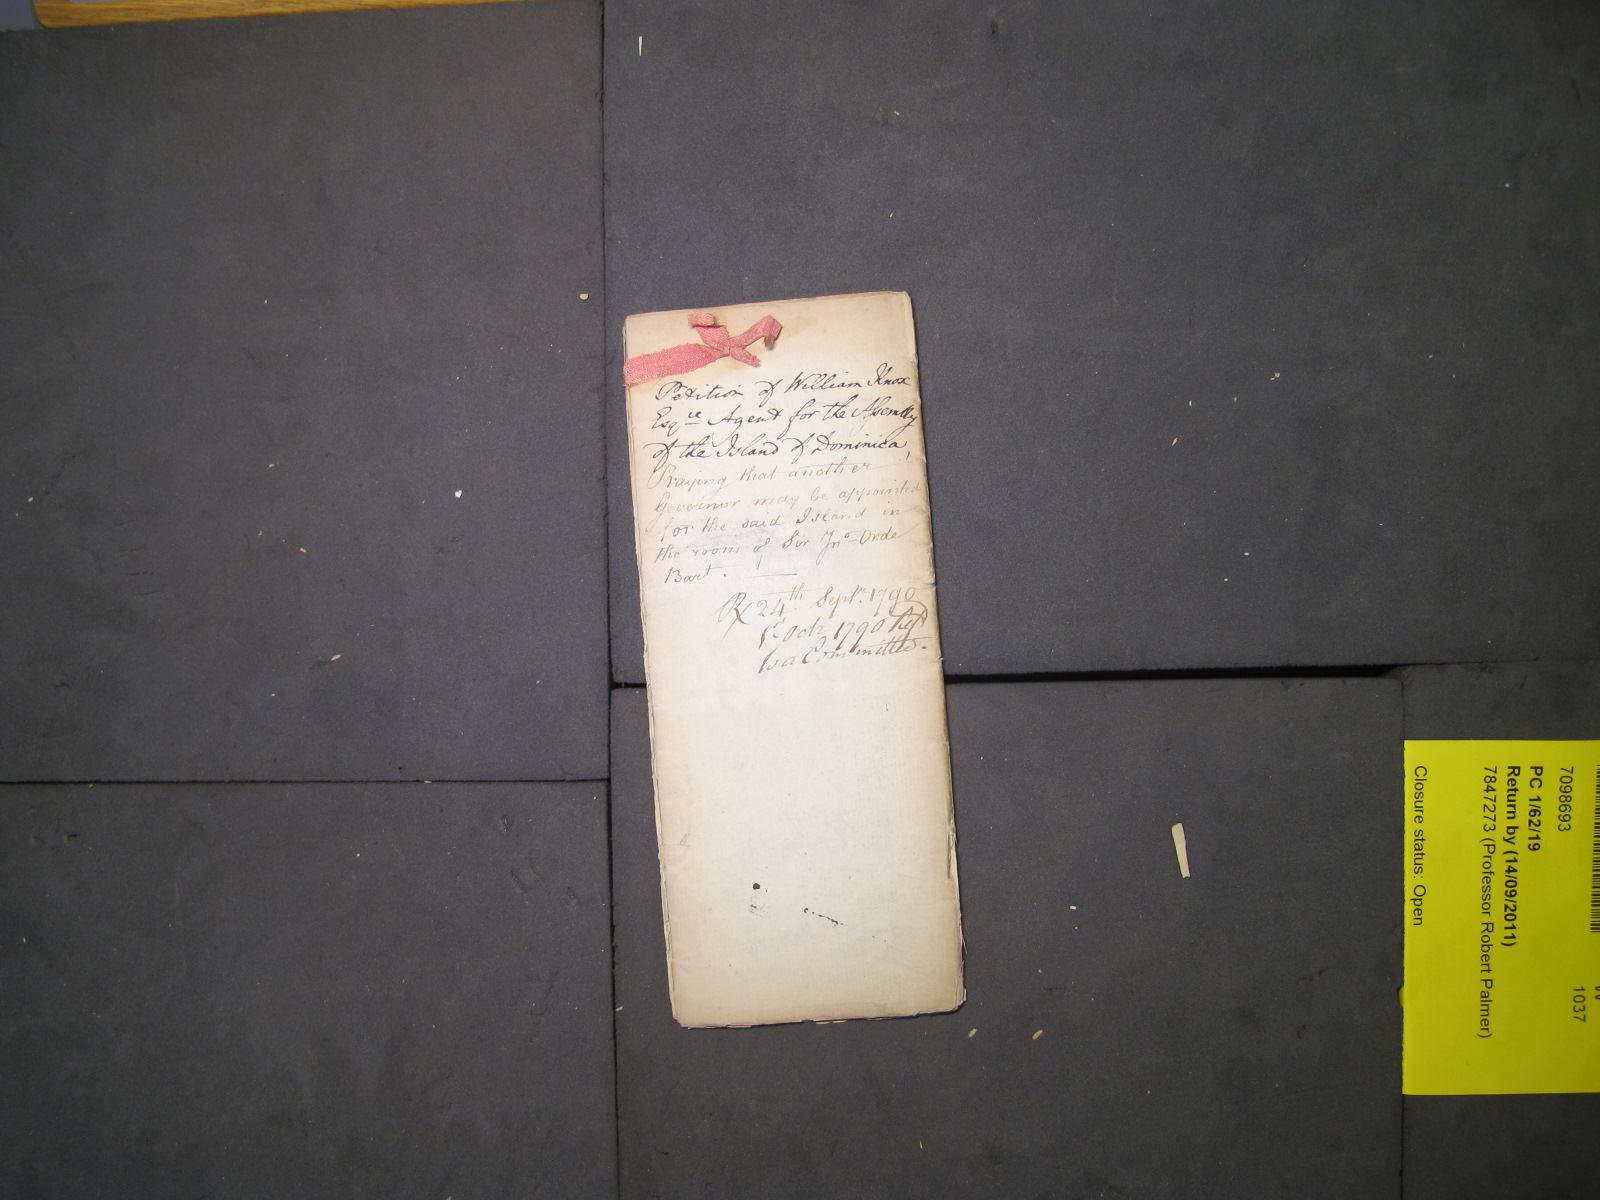 Petition of William Knox
Esqre Agent for the Assembly
of the Island of Dominica
Praying that another
Governor may be appointed
for the said Island in
the room of Sir Jno Orde
Bart.
Rx 24th Septr. 1790
1st Octr 1790 Refd
to a Committee.
7098693
1037
PC 1/62/19
Return by (14/09/2011)
7847273 (Professor Robert Palmer)
Closure status: Open